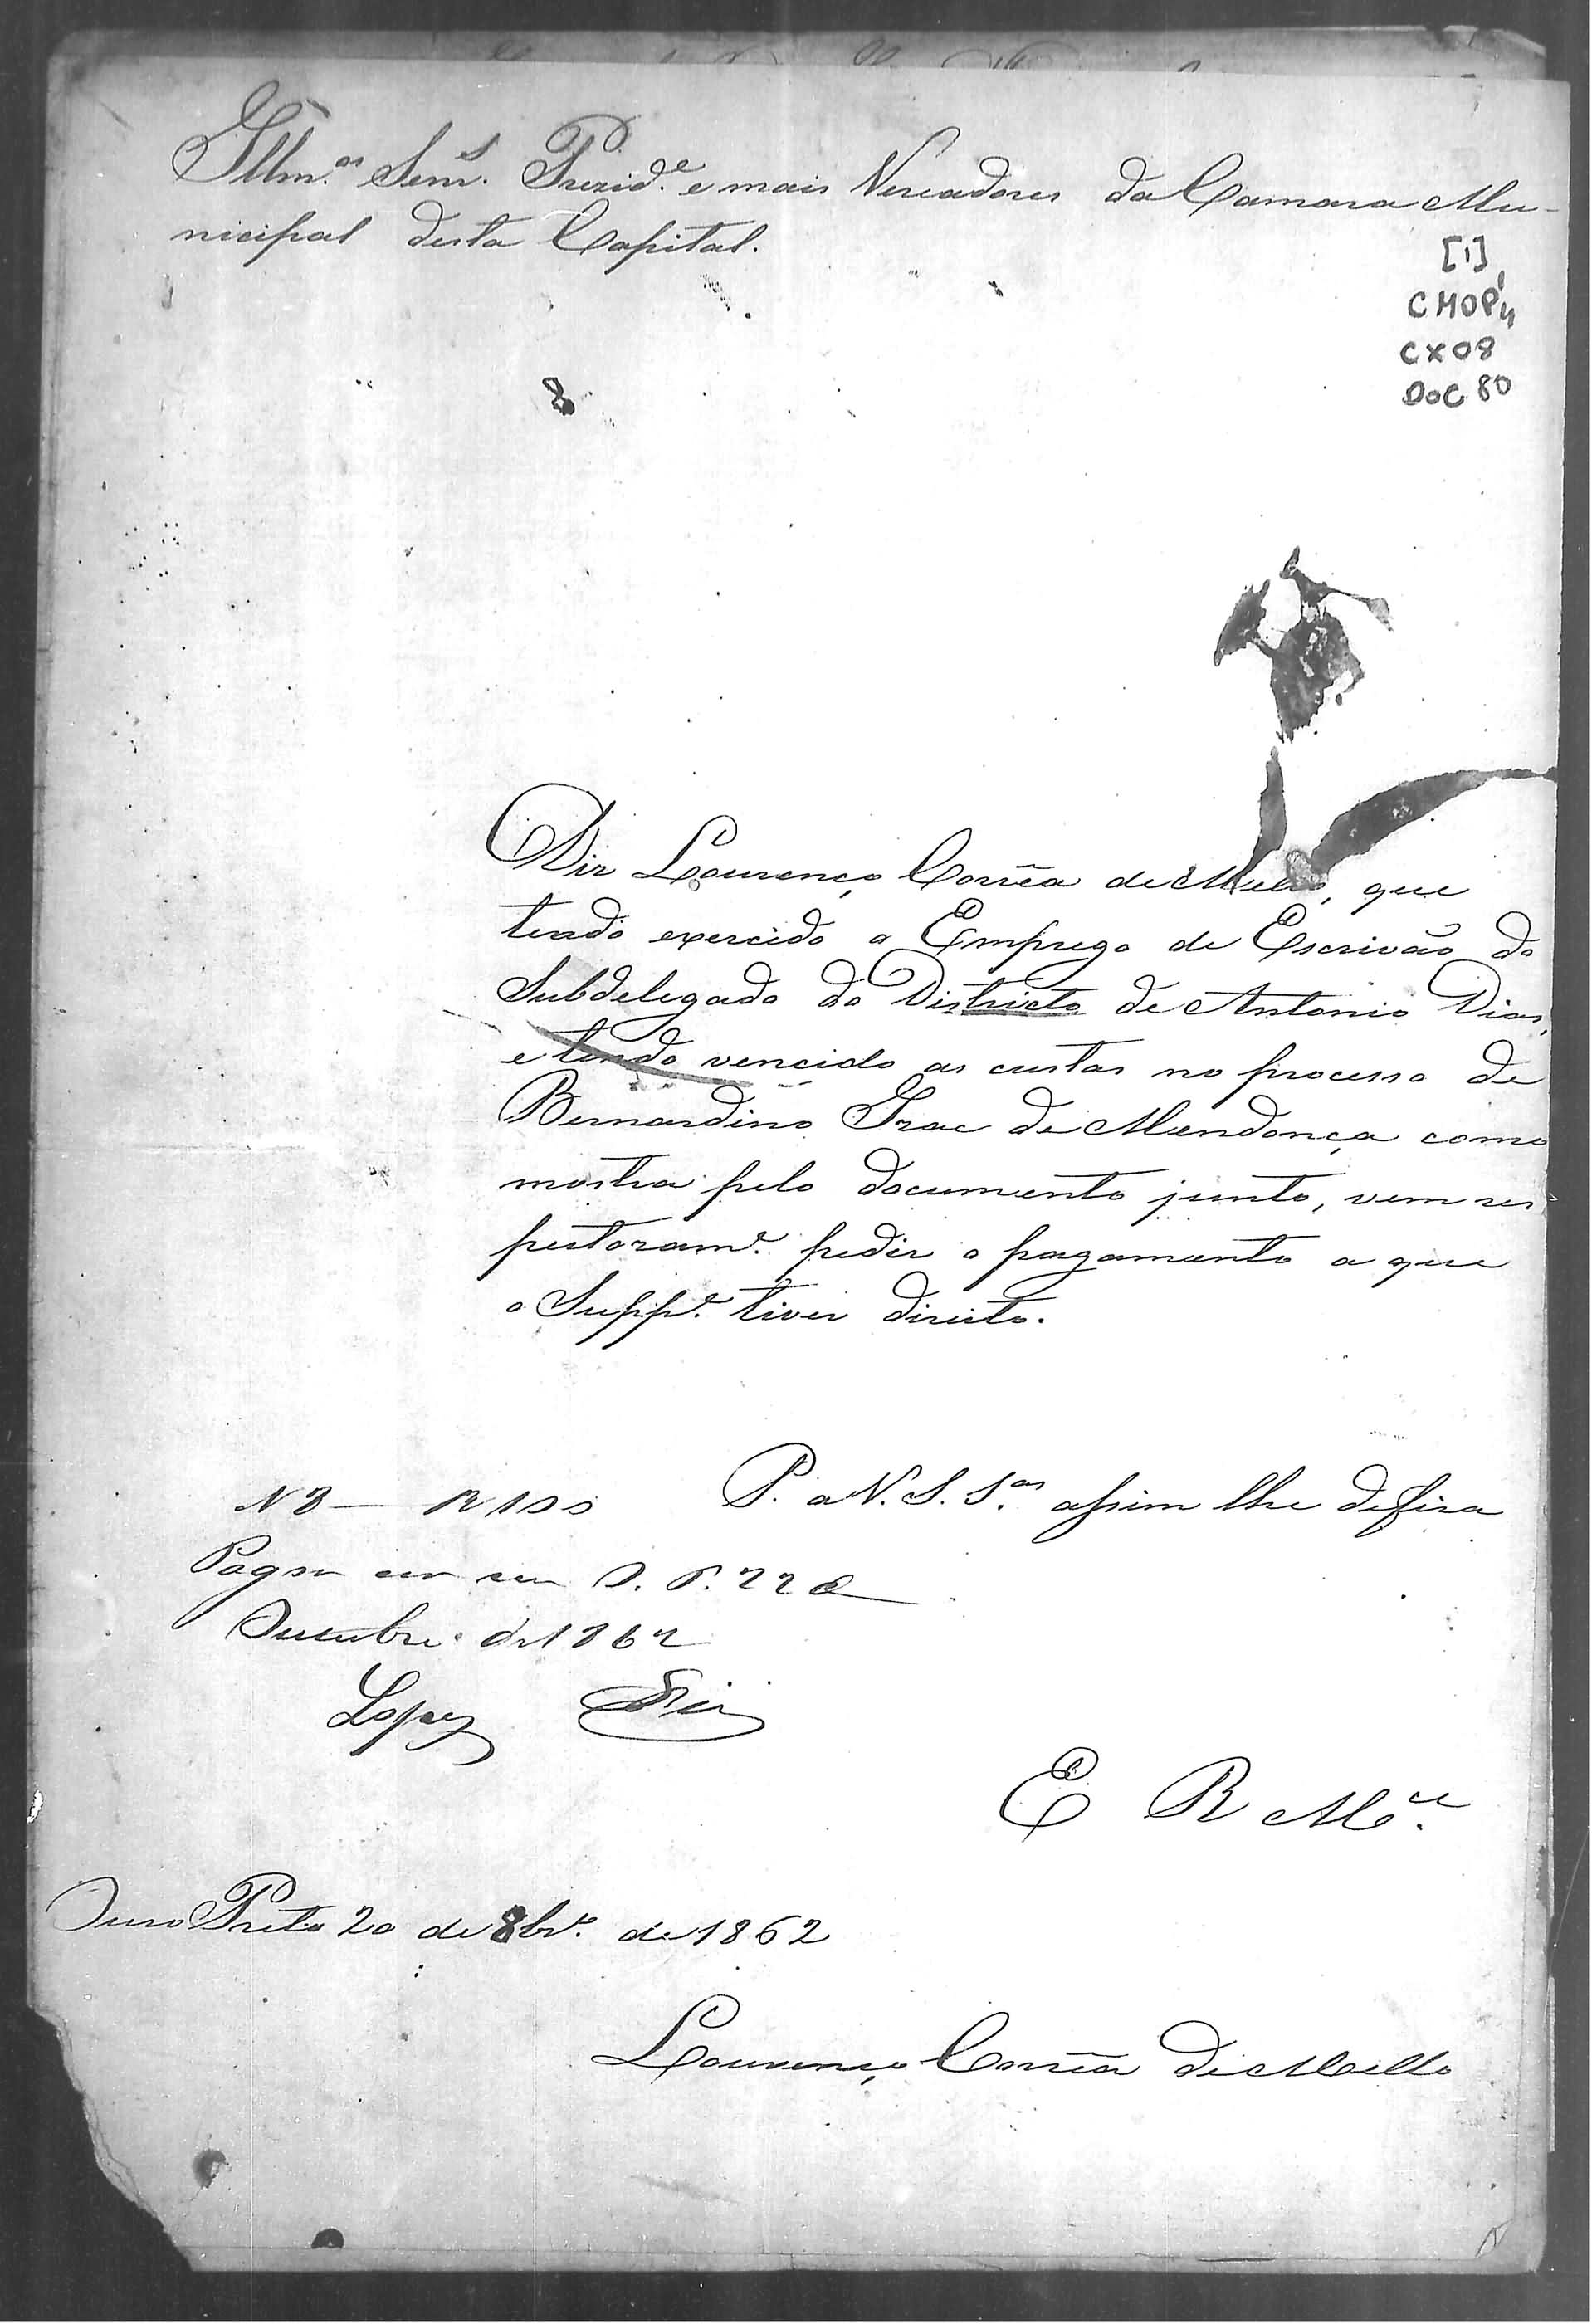 Illm.os Senr.s Prezid.e e mais Vereadores da Camara Mu-
nicipal desta Capital.
[1]
CMOP
CX08
DOC 80
Diz Lourenço Corrêa de Mello, que
tendo exercido o Emprego de Escrivão do
Subdelegado do Districto de Antonio Dias,
e tendo vencido as custas no processo de
Bernardino Izac de Mendonça como
mostra pelo documento junto, vem res
peitozam.e pedir o pagamento a que
o Supp.e tiver direito.
P. a V. S. S.as assim lhe defira
N 3 — R 100
Pague 22 de
Outubro de 1862
Lopes
E R M.ce
Ouro Preto 20 de 8br.o de 1862
Lourenço Corrêa de Mello